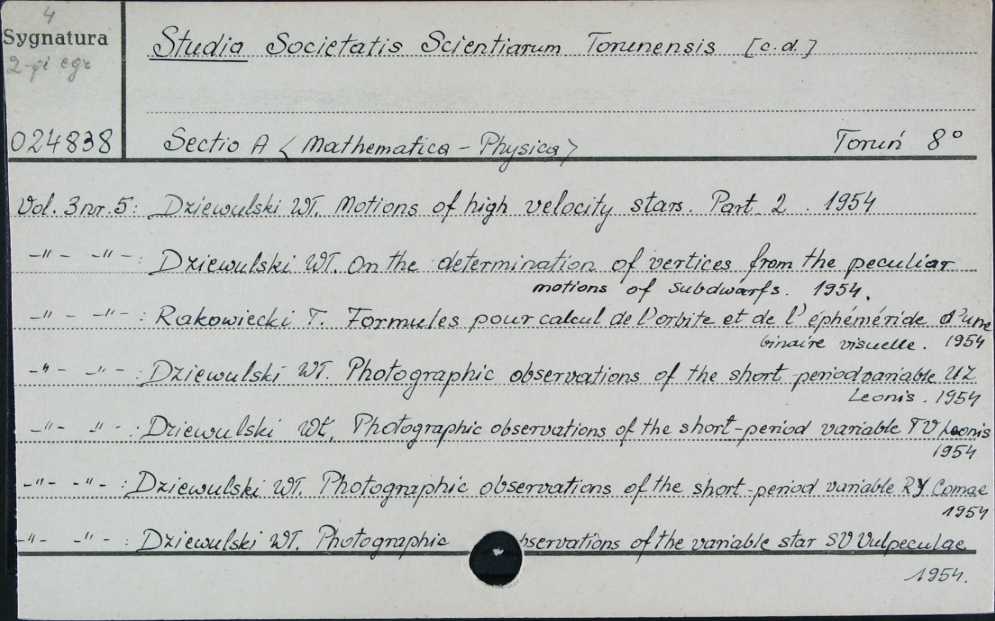 4
Sygnatura
2-gi egz
024838
Studia Societatis Scientiarum Torunensis [c.d.]
Sectio A <Mathematica - Physica> Toruń 8°
Vol. 3 nr. 5: Dziewulski Wł. Motions of high velocity stars. Part. 2. 1954
-"- -"-: Dziewulski Wł. On the determination of vertices from the peculiar
motions of subdwarfs. 1954.
-"- -"-: Rakowiecki T. Formules pour calcul de l'orbite et de l'éphéméride d'une
binaire visuelle. 1954
-"- -"-: Dziewulski Wł. Photographic observations of the short period variable UZ
Leonis. 1954
-"- -"-: Dziewulski Wł. Photographic observations of the short-period variable TV Leonis
1954
-"- -"-: Dziewulski Wł. Photographic observations of the short-period variable RY Comae
1954
-"- -"-: Dziewulski Wł. Photographic bservations of the variable star SV Vulpeculae
1954.